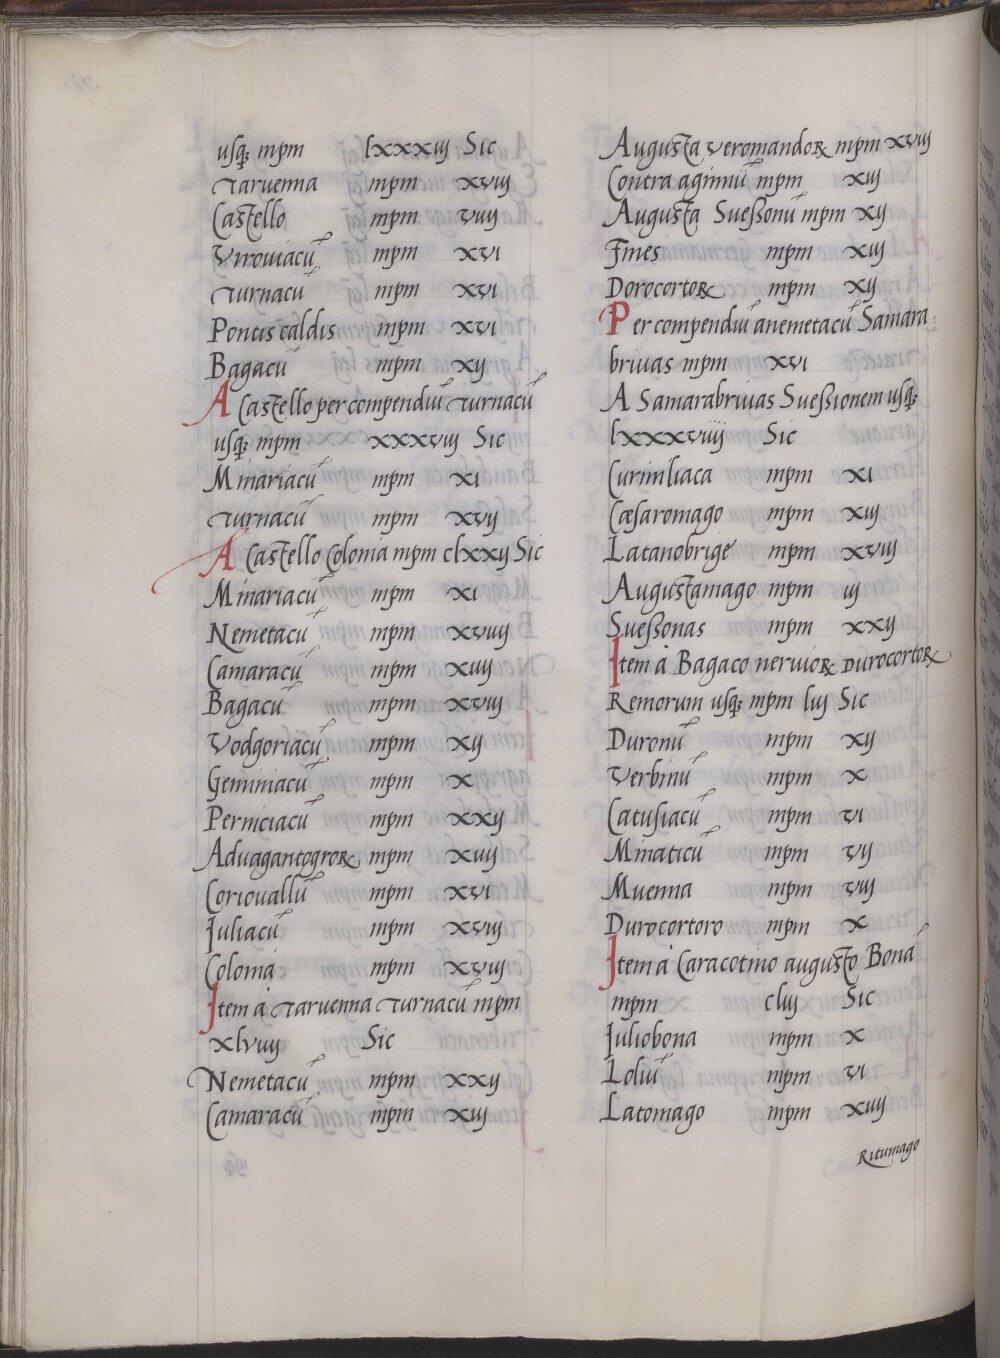 usq; mpm lxxxiij Sic
Taruenna mpm xviij
Castello mpm viiij
Virouiacū mpm xvi
Turnacū mpm xvi
Pontis caldis mpm xvi
Bagacū mpm xij
A Castello per compendiū Turnacū
usq; mpm xxxviij Sic
Minariacū mpm xi
Turnacū mpm xvij
A Castello Colonia mpm clxxij Sic
Minariacū mpm xi
Nemetacū mpm xviiij
Camaracū mpm xiiij
Bagacū mpm xviij
Vodgoriacū mpm xij
Geminiacū mpm x
Perniciacū mpm xxij
Aduagantogroꝝ mpm xiiij
Coriouallū mpm xvi
Iuliacū mpm xviij
Colonia mpm xviij
Item à Taruenna Turnacū mpm
xlviiij Sic
Nemetacū mpm xxij
Camaracū mpm xiij
Augusta veromandoꝝ mpm xviij
Contra aginnū mpm xiij
Augusta Sueßonū mpm xij
Fines mpm xiij
Dorocortoꝝ mpm xij
Per compendiū anemetacū Samara:
briuas mpm xvi
A Samarabriuas Sueßionem usq;
lxxxviiij Sic
Curmiliaca mpm xi
Cæsaromago mpm xiij
Latanobrige mpm xviij
Augustamago mpm iij
Sueßonas mpm xxij
Item à Bagaco neruioꝝ Durocortoꝝ
Remorum usq; mpm liij Sic
Duronū mpm xij
Verbinū mpm x
Catusiacū mpm vi
Minaticū mpm vij
Muenna mpm viij
Durocortoro mpm x
Item à Caracotino augusto Bonā
mpm cliij Sic
Iuliobona mpm x
Loliū mpm vi
Latomago mpm xiiij
Ritumago